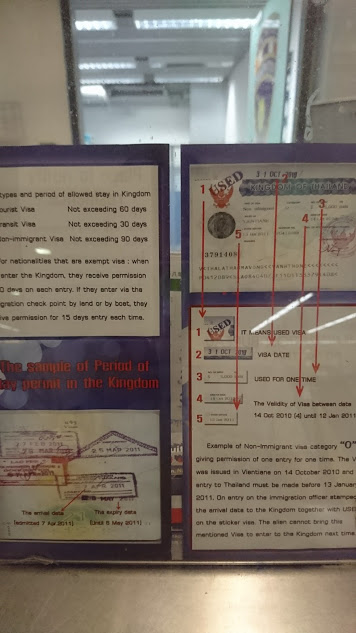 types and period of allowed stay in Kingdom
ourist Visa Not exceeding 60 days
ransit Visa Not exceeding 30 days
on-immigrant Visa Not exceeding 90 days
for nationalities that are exempt visa : when
enter the Kingdom, they receive permission
0 days on each entry. If they enter via the
gration check point by land or by boat, they
ive permission for 15 days entry each time.
The sample of Period of
stay permit in the Kingdom
MAR 2011
The arrival date
(admitted 7 Apr.2011)
The expiry date
(Until 6 May 2011)
31 OCT
USED
KINGDOM OF THAILAND
1
2
3
4
5
3791409
1 USED IT MEANS USED VISA
2 31 OCT VISA DATE
3 USED FOR ONE TIME
4 The Validity of Visa between date
5 14 Oct 2010 (4) until 12 Jan 2011
Example of Non-immigrant visa category "O"
giving permission of one entry for one time. The V
was issued in Vientiane on 14 October 2010 and
entry to Thailand must be made before 13 January
2011. On entry the immigration officer stamped
the arrival date to the Kingdom together with USED
on the sticker visa. The alien cannot bring this
mentioned Visa to enter to the Kingdom next time